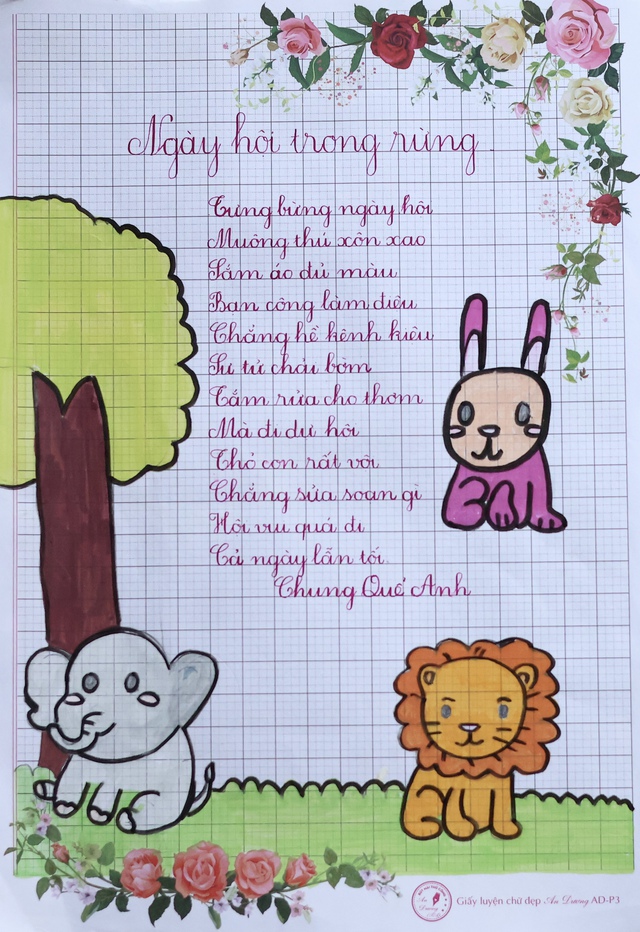 Ngày hội trong rừng
Tưng bừng ngày hội
Muông thú xôn xao
Sắm áo đủ màu
Bạn công làm điệu
Chẳng hề kênh kiệu
Sư tử chải bờm
Tắm rửa cho thơm
Mà đi dự hội
Thỏ con rất vội
Chẳng sửa soạn gì
Hội vui quá đi
Cả ngày lẫn tối.
Chung Quế Anh
Giấy luyện chữ đẹp An Dương AD-P3